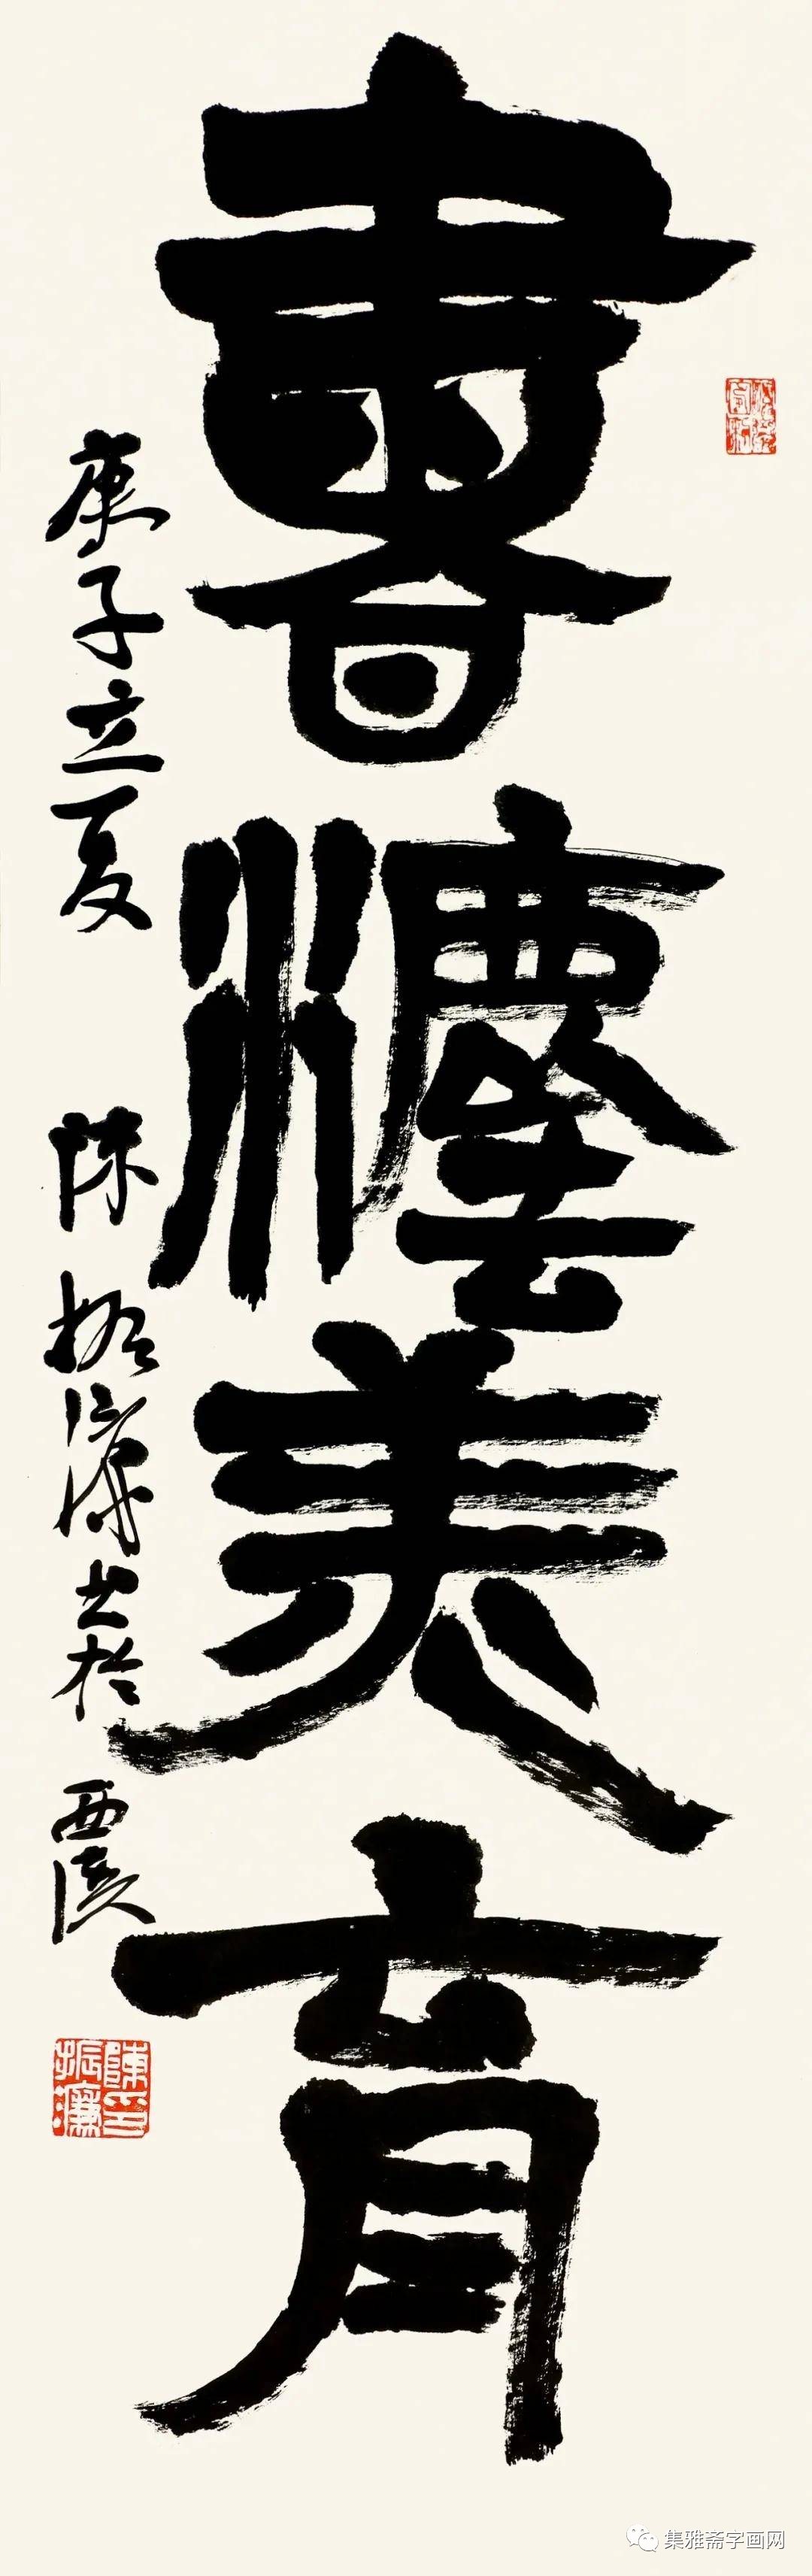 書灋美育
庚子立夏 陈振濂书於西溪
陳印振濂
集雅斋字画网